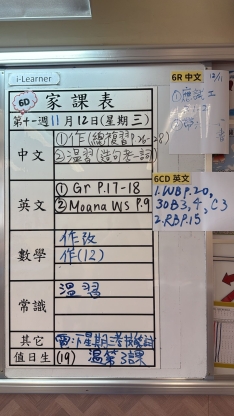 i-Learner
6D 家課表
第十一週 11 月 12 日(星期 三)
中文
①作(總複習
②溫習(造句卷一詞)
英文
① Gr P.17-18
② Moana WS P.9
數學
作改
作(12)
常識
溫習
其它
值日生 (19) 溫第3課
6R 中文
6CD 英文
1.WB P.20,
30B3,4,C3
2.RB P.15